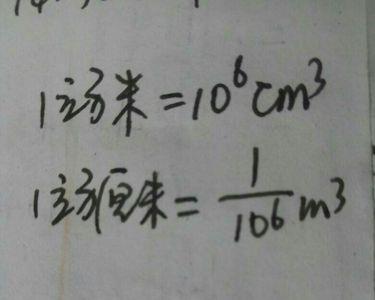 1立方米=10⁶cm³
1立方厘米=1/10⁶m³